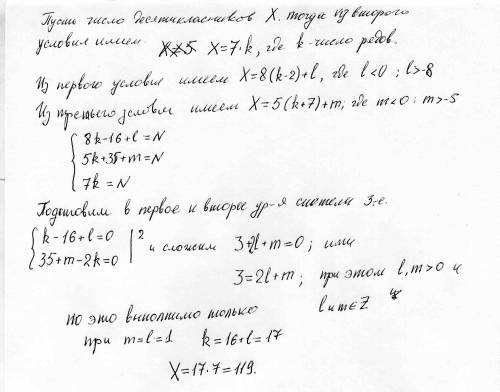 Пусть число десятиклассников X. тогда из второго
условия имеем X=7·k, где k-число рядов.
Из первого условия имеем X=8(k-2)+l, где l<0 ; l>-8
Из третьего условия имеем X=5(k+7)+m; где m<0 : m>-5
8k-16+l=N
5k+35+m=N
7k=N
Подставим в первое и второе ур-я системы 3-е.
k-16+l=0 |2 и сложим 3+2l+m=0; или
35+m-2k=0
3=2l+m; при этом l,m>0 и
l и m∈Z
но это выполнимо только
при m=l=1 k=16+l=17
X=17·7=119.